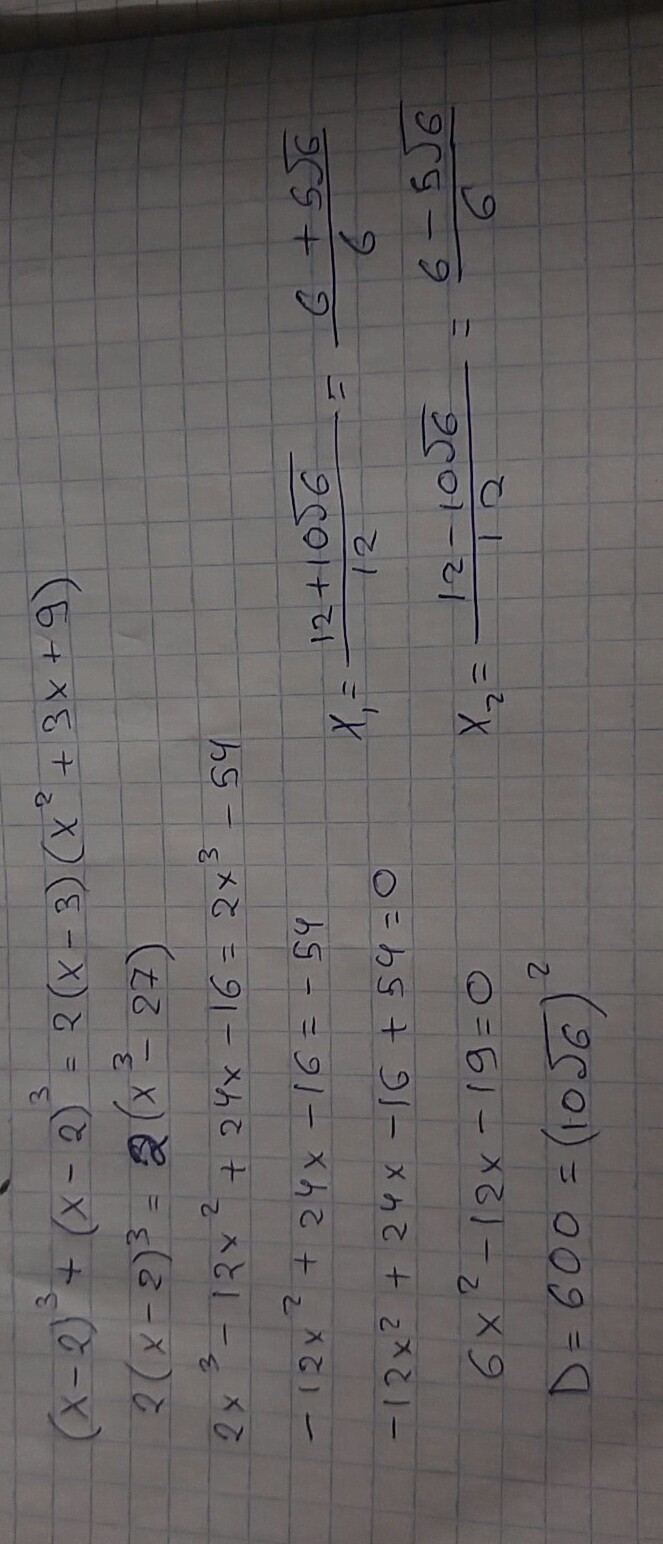 (x-2)³ + (x-2)³ = 2(x-3)(x² + 3x + 9)
2(x-2)³ = 2(x³ - 27)
2x³ - 12x² + 24x - 16 = 2x³ - 54
-12x² + 24x - 16 = -54
-12x² + 24x - 16 + 54 = 0
6x² - 12x - 19 = 0
D = 600 = (10√6)²
x₁ = (12+10√6)/12 = (6 + 5√6)/6
x₂ = (12-10√6)/12 = (6 - 5√6)/6